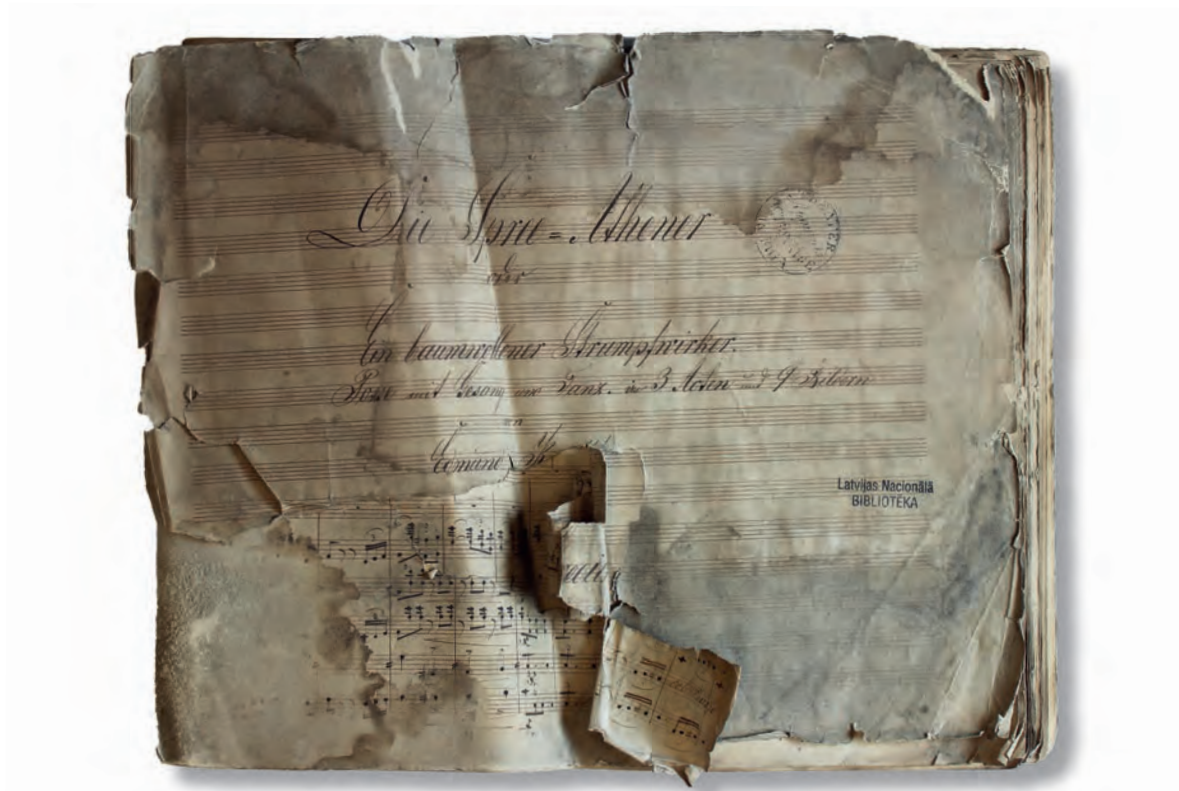 Die Spree=Athener
oder
Ein baumwollener Strumpfwirker.
Posse mit Gesang und Tanz. in 3 Acten und 9 Bildern
von
Latvijas Nacionālā
BIBLIOTĒKA